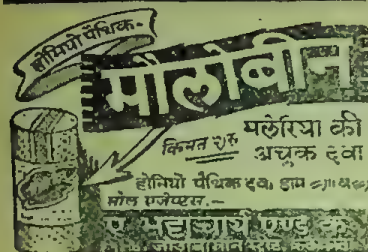 होमियो पैथिक-
मोलोबीन
किमत २)रु
मलेरिया की
अचुक दवा
होमियो पैथिक दवा ड्राम
सोल एजेण्टस.—
ए भट्टाचार्य एण्ड कं